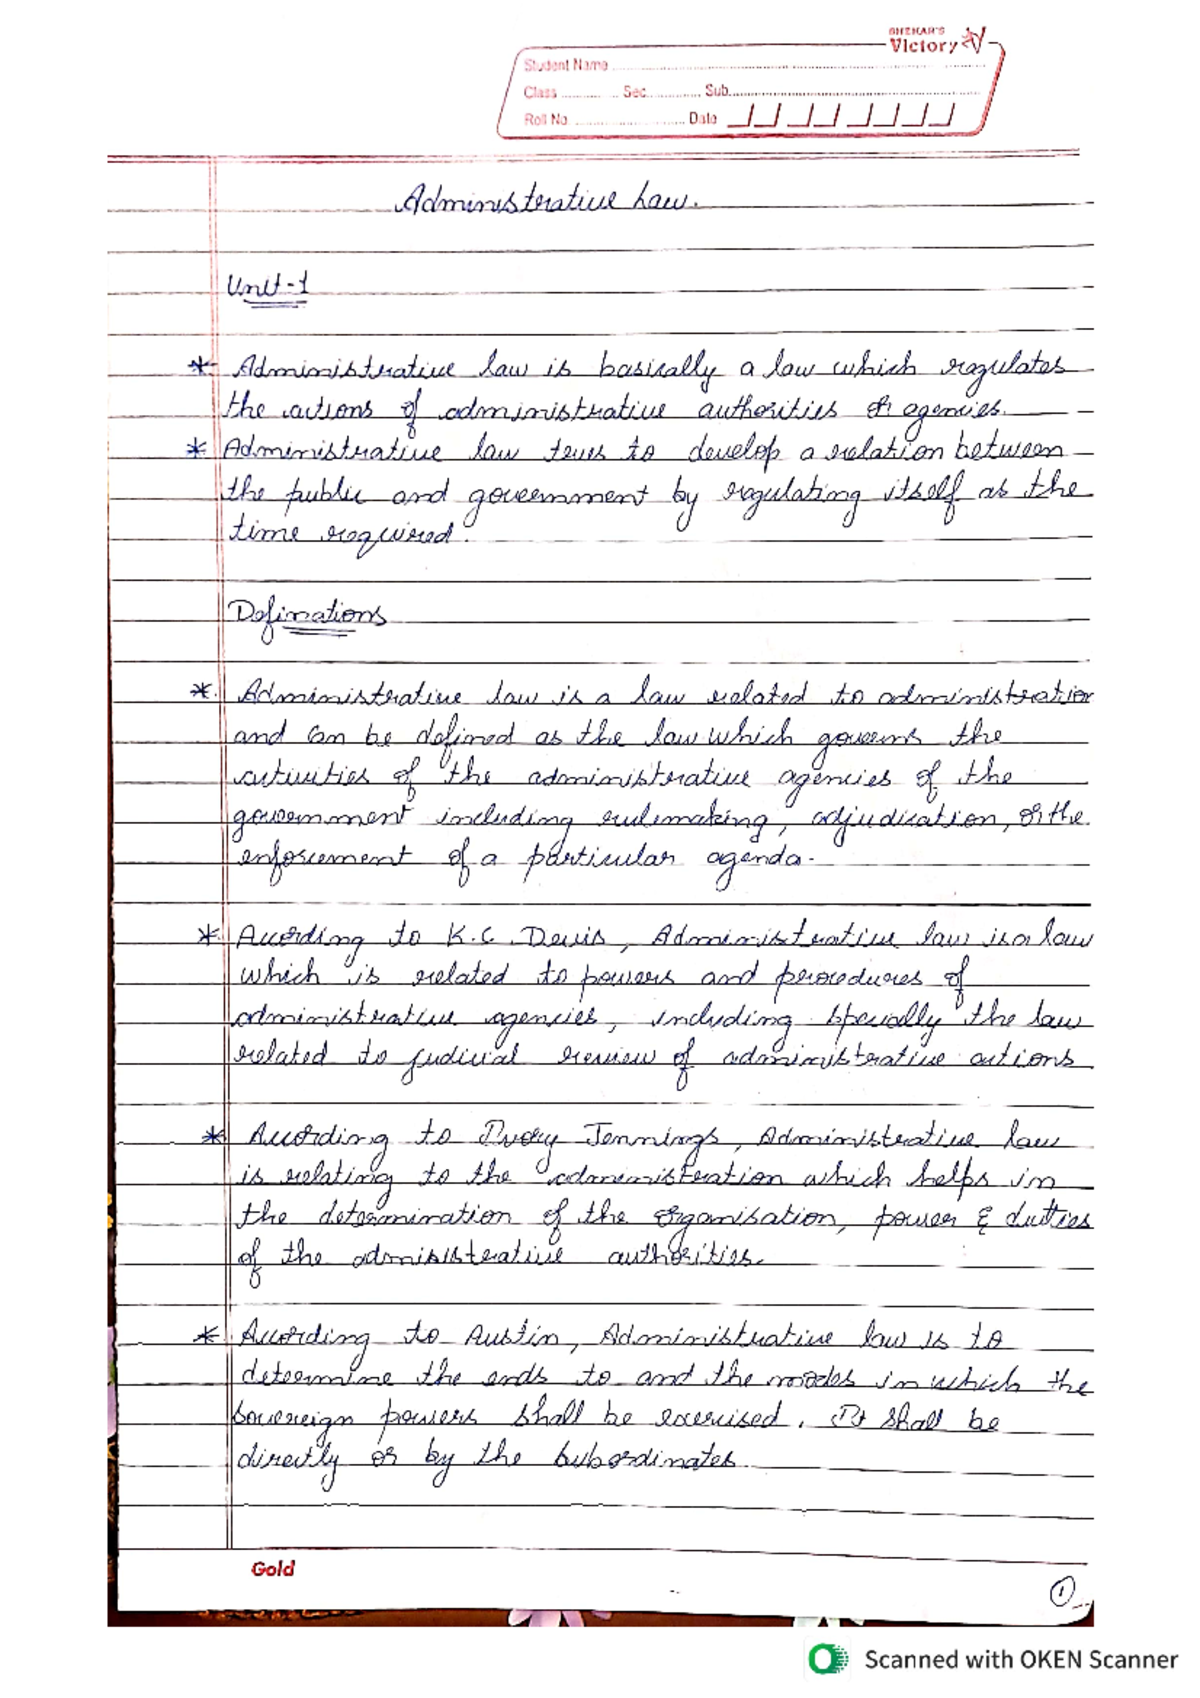 SHEKAR'S
Victory
Student Name
Class Sec. Sub.
Roll No. Date
Administrative Law.
Unit-1
* Administrative law is basically a law which regulates
the actions of administrative authorities or agencies.
* Administrative law trues to develop a relation between
the public and government by regulating itself as the
time required.
Definations
* Administrative law is a law related to administration
and can be defined as the law which governs the
activities of the administrative agencies of the
government including rulemaking, adjudication, or the
enforcement of a particular agenda.
* According to K.C. Davis, Administrative law is a law
which is related to powers and procedures of
administrative agencies, including specially the law
related to judicial review of administrative actions
* According to Ivory Jennings, Administrative law
is relating to the administration which helps in
the determination of the organisation, power & duties
of the administrative authorities.
* According to Austin, Administrative law is to
determine the ends to and the modes in which the
sovereign powers shall be exercised. It shall be
directly or by the subordinates
Gold
1
Scanned with OKEN Scanner